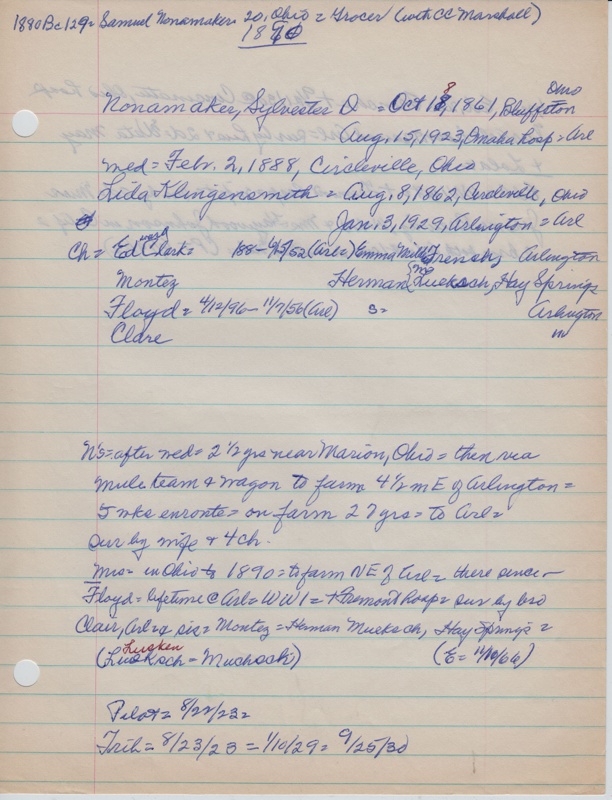 1880 Bc 129= Samuel Nonamaker= 20, Ohio = Grocer (with CC Marshall)
1870
Ohio
Nonamaker, Sylvester D = Oct 18, 1861, Bluffton
Aug. 15, 1923, Omaha Hosp = Arl
med = Febr. 2, 1888, Circleville, Ohio
Lida Klingensmith = Aug, 8, 1862, Circleville, Ohio
Jan. 3, 1929, Arlington = Arl
Ch = Ed Clark= 188 - 4/25/62 (Arl=) Emma Mills French, Arlington
Montez Herman Mc Lueksch, Hay Springs
Floyd = 4/12/96 - 11/7/56 (Arl) s= Arlington
Clare
N's = after med = 2 1/2 yrs near Marion, Ohio = then via
mule team & wagon to farm 4 1/2 m E of Arlington =
5 wks enroute = on farm 27 yrs = to Arl =
sur by wife & 4 ch.
Mrs = in Ohio to 1890 = to farm NE of Arl = there since -
Floyd = lifetime @ Arl = WW I = + Fremont Hosp = sur by bro
Clair, Arl & sis = Montez = Herman Mueksch, Hay Springs =
Lusken
(Lueksch = Muchsch) (E = 11/10/66)
Pilot = 8/22/23 =
Trib = 8/23/23 = 1/10/29 = 9/25/30